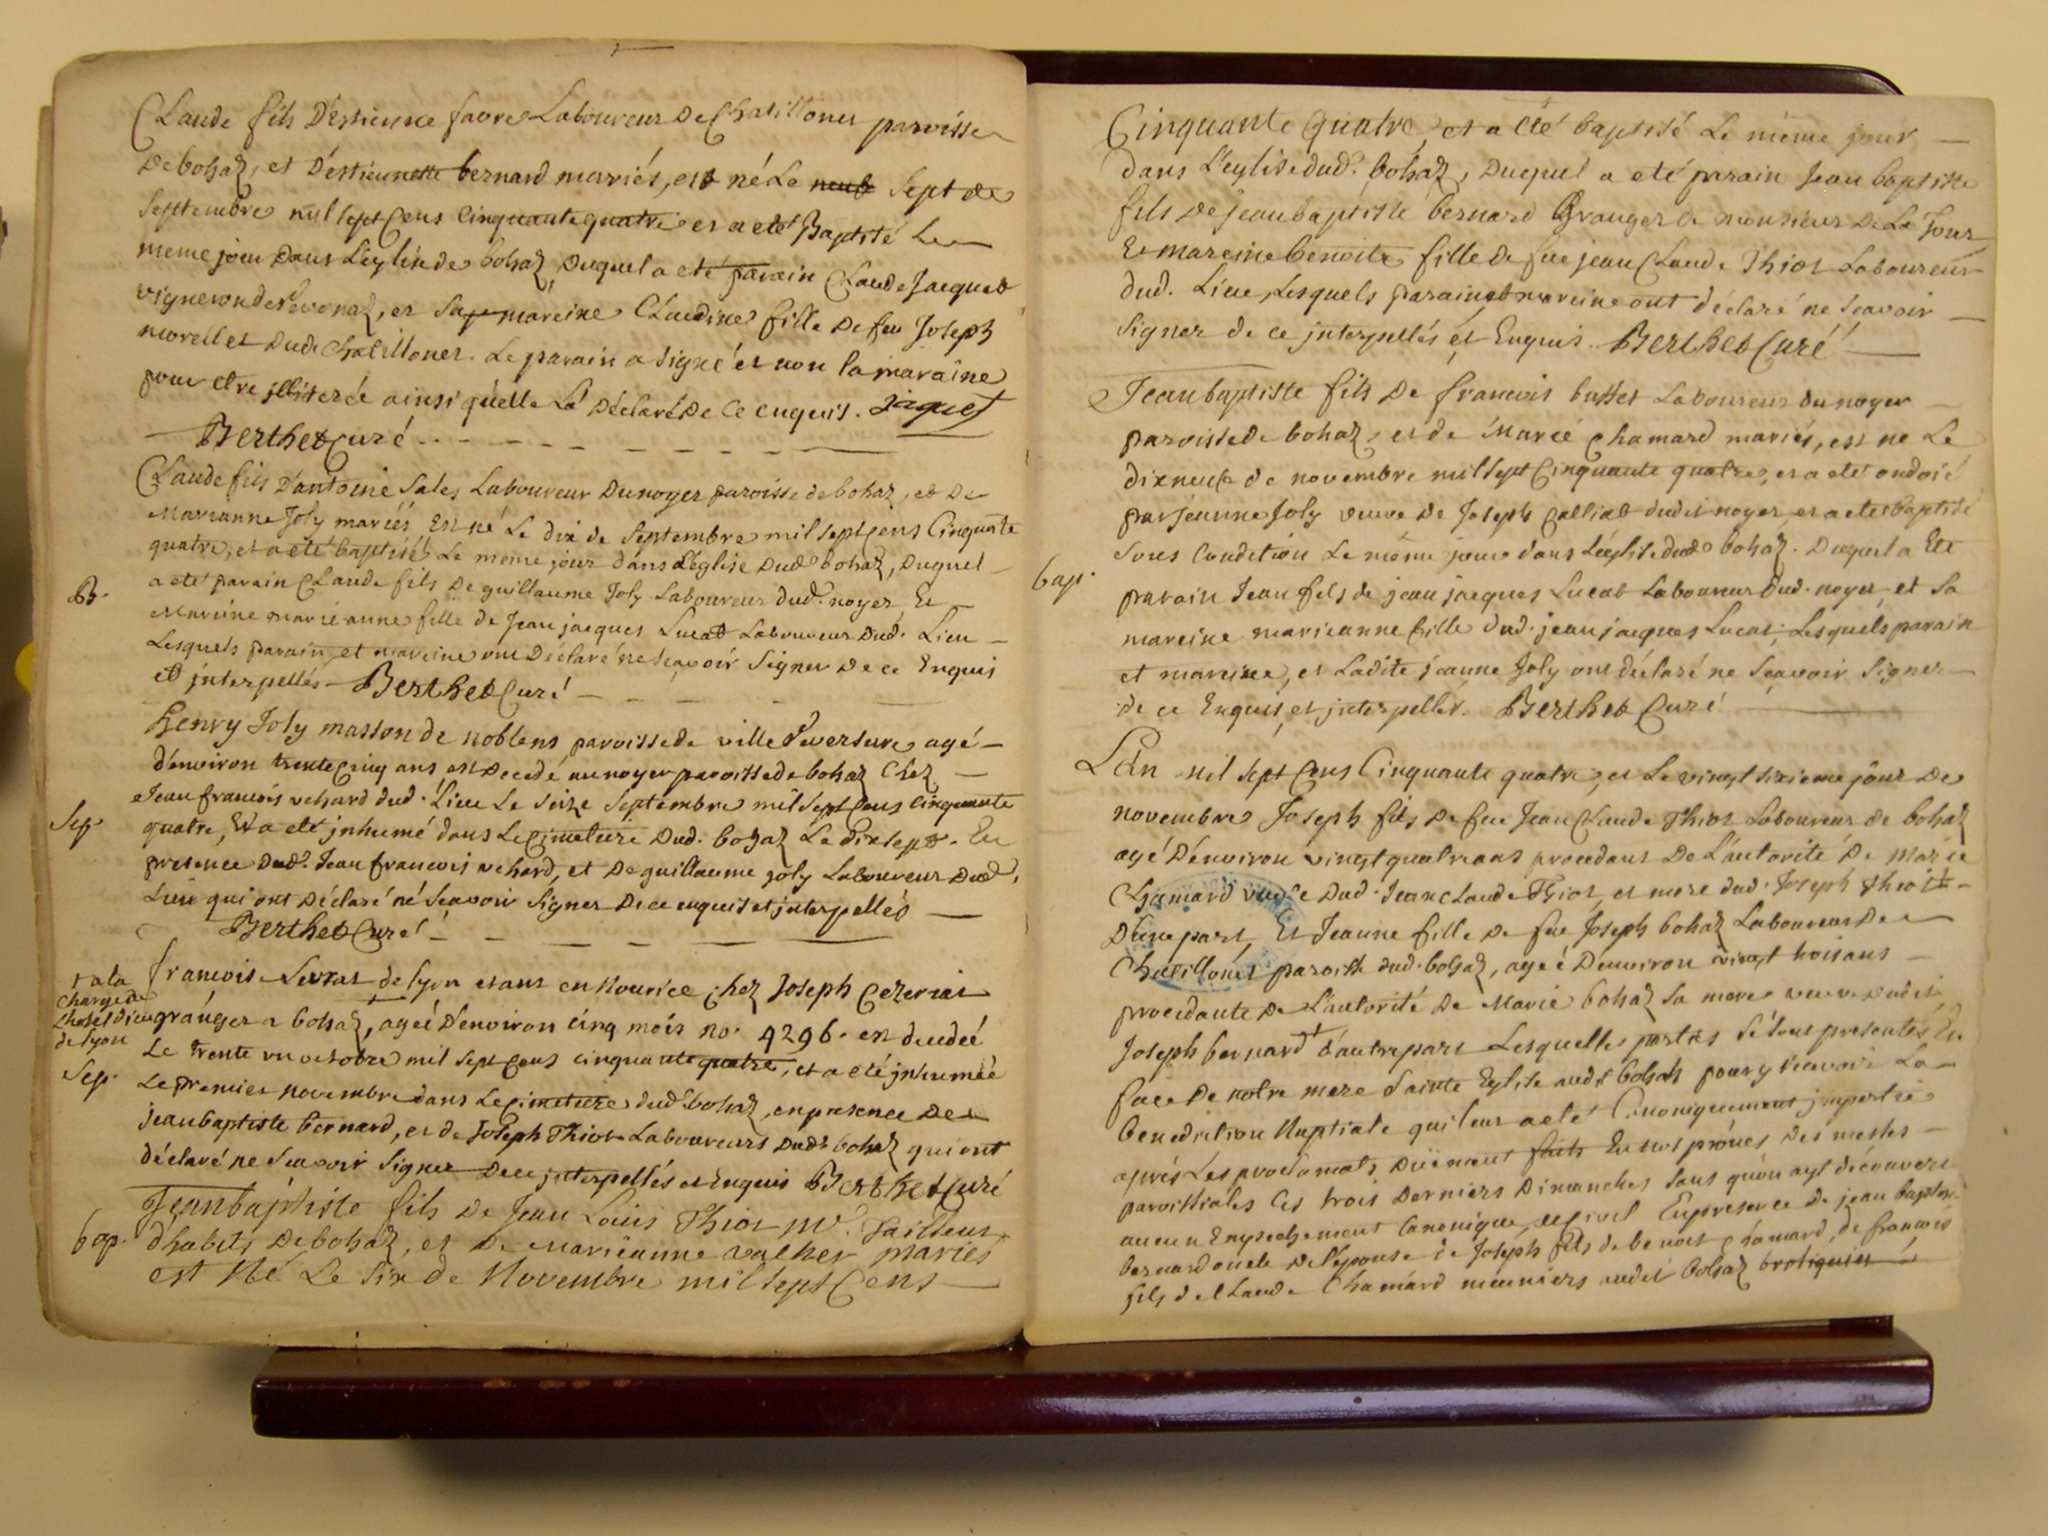 Claude fils D'estienne favre Laboureur De Chatillonet paroisse
De bohaz, et D'estiennette bernard mariés, est né Le neuf Sept de
Septembre mil sept Cens Cinquante quatre et a eté Baptisé Le
meme jour Dans L'eglise de bohaz, Duquel a eté parain Claude Jacquet
vigneron de Revonaz, et Sa mareine Claudine fille De feu Joseph
morellet Dud. Chatillonet. Le parain a signé et non la maraine
pour etre jlliterée ainsi qu'elle L'a Déclaré De Ce enquis. Jaquet
Berthet Curé
Claude fils D'antoine Sales Laboureur Du noyer paroisse de bohaz, et De
Marianne Joly mariés Est né Le dix de Septembre mil sept Cens Cinquante
quatre, et a eté baptisé Le meme jour dans L'eglise Dud. bohaz, Duquel
a eté parain Claude fils De guillaume Joly Laboureur dud. noyer, Et
Mareine marieanne fille de Jean jacques Lucat Laboureur Dud. Lieu
Lesquels parain et mareine ont Déclaré ne Sçavoir Signer De ce Enquis
et jnterpellés Berthet Curé
B.
henry Joly masson de noblens paroisse de ville Reversure agé
d'environ trente Cinq ans est Decedé au noyer paroisse de bohaz Chez
Jean francois vehard dud. Lieu Le Seize Septembre mil Sept Cens Cinquante
quatre, Et a eté jnhumé dans Le Cimetiere Dud. bohaz Le dixsept. En
presence Dud. Jean francois vehard, et De guillaume joly Laboureur Dud.
Lieu qui ont Déclaré né Sçavoir Signer De ce enquis et jnterpellés
Sep.
Berthet Curé
francoise de lyon etant en Nourice chez Joseph Cezeriat
granger a bohaz, ageé D'environ cinq mois no. 4296. est decedeé
Le trente un octobre mil Sept Cens cinquante quatre, et a eté jnhumeé
Le premier novembre dans Le Cimetiere dud. bohaz, en presence De
jean baptiste bernard, et de Joseph Thiot Laboureurs Dud. bohaz qui ont
déclaré ne Sçavoir Signer De ce jnterpellés et Enquis Berthet Curé
+ a la
Charge de
L'hotel dieu
de lyon
Sep.
Jean baptiste fils De Jean Louis Thiot Me. Tailleur
d'habits De bohaz, et De Marieanne mariés
est Né Le Six de Novembre mil Sept Cens
bap.
Cinquante quatre et a eté baptisé Le même jour
dans L'eglise dud. bohaz, Duquel a eté parain Jean baptiste
fils de jean baptiste bernard Granger de monsieur De La Tour
Et mareine benoite fille de feu jean Claude Thiot Laboureur
dud. Lieu, Lesquels parain et mareine ont déclaré ne Scavoir
Signer de ce jnterpellés et Enquis. Berthet Curé
Jean baptiste fils De francois buffet Laboureur du noyer
paroisse de bohaz, et de Marie Chamard mariés, est ne Le
dixneuf de novembre mil Sept Cinquante quatre, et a eté ondoié
par jeanne Joly veuve De Joseph Calliat dudit noyer, et a eté baptisé
Sous Condition Le même jour dans L'eglise dud. bohaz. Duquel a Eté
parain Jean fils de jean jacques Lucat Laboureur Dud. noyer, et Sa
mareine marieanne fille dud. jean jacques Lucat, Lesquels parain
et mareine, et Ladite jeanne Joly ont déclaré ne Sçavoir Signer
de ce Enquis et jnterpellés. Berthet Curé
bap.
L'an mil Sept Cens Cinquante quatre, et Le vingt sixieme jour De
novembre Joseph fils De feu Jean Claude Thiot Laboureur de bohaz
agé D'environ vingt quatre ans procedant De L'autorité De Marie
Chamard veuve Dud. Jean Claude Thiot, et mere dud. Joseph Thiot
D'une part, Et Jeanne fille De feu Joseph bohaz Laboureur De
Chatillonet paroisse dud. bohaz, ageé D'environ vingt trois ans
procedante De L'autorité De Marie bohaz Sa mere veuve Dudit
Joseph bernard + d'autre part Lesquelles parties Se Sont presentés En
face De notre mere Sainte Eglise audit bohaz pour y recevoir La
benediction Nuptiale qui leur a eté Canoniquement jmpertie
aprés Les proclamats Duëment faits En nos prônes Des messes
paroissiales Les trois Derniers Dimanches Sans qu'on ayt découvert
aucun Empechement Canonique, ny Civil En presence De jean baptiste
bernard oncle De L'epouse de Joseph fils de benoit Chamard, de francois
fils de Claude Chamard meuniers audit bohaz